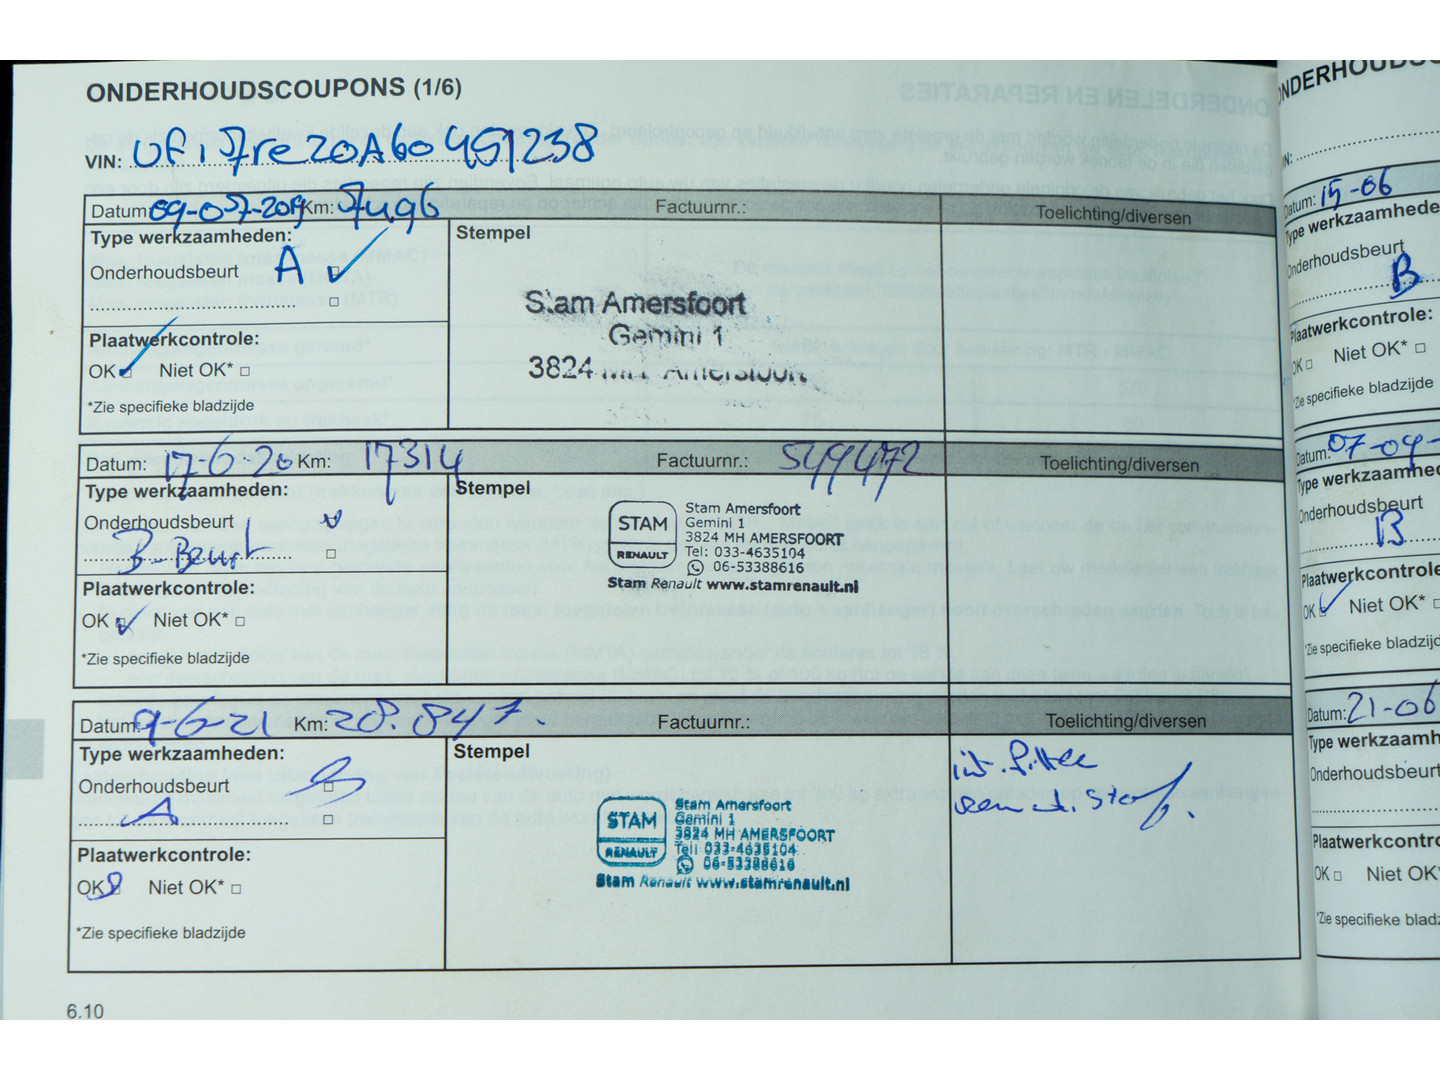 ONDERHOUDSCOUPONS (1/6)
VIN: Vf17re20A60491238
Datum: 09-07-2019 Km: 7496 Factuurnr.: Toelichting/diversen
Type werkzaamheden: Stempel
Onderhoudsbeurt A
Stam Amersfoort
Gemini 1
3824 MH Amersfoort
Plaatwerkcontrole:
OK Niet OK*
*Zie specifieke bladzijde
Datum: 17-6-20 Km: 17314 Factuurnr.: 549472 Toelichting/diversen
Type werkzaamheden: Stempel
Onderhoudsbeurt
B-Beurt
STAM
RENAULT
Stam Amersfoort
Gemini 1
3824 MH AMERSFOORT
Tel: 033-4635104
06-53388616
Stam Renault www.stamrenault.nl
Plaatwerkcontrole:
OK Niet OK*
*Zie specifieke bladzijde
Datum: 9-6-21 Km: 28.847. Factuurnr.: Toelichting/diversen
Type werkzaamheden: Stempel
Onderhoudsbeurt
A
STAM
RENAULT
Stam Amersfoort
Gemini 1
3824 MH AMERSFOORT
Tel: 033-4635104
06-53388616
Stam Renault www.stamrenault.nl
Plaatwerkcontrole:
OK Niet OK*
*Zie specifieke bladzijde
6.10
Datum: 15-06
Type werkzaamhede
Onderhoudsbeurt
B
Plaatwerkcontrole:
OK Niet OK*
*Zie specifieke bladzijde
Datum: 07-09-
Type werkzaamhed
Onderhoudsbeurt
B
Plaatwerkcontrole
OK Niet OK*
*Zie specifieke bladzijd
Datum: 21-06
Type werkzaamh
Onderhoudsbeurt
Plaatwerkcontro
OK Niet OK*
*Zie specifieke blad